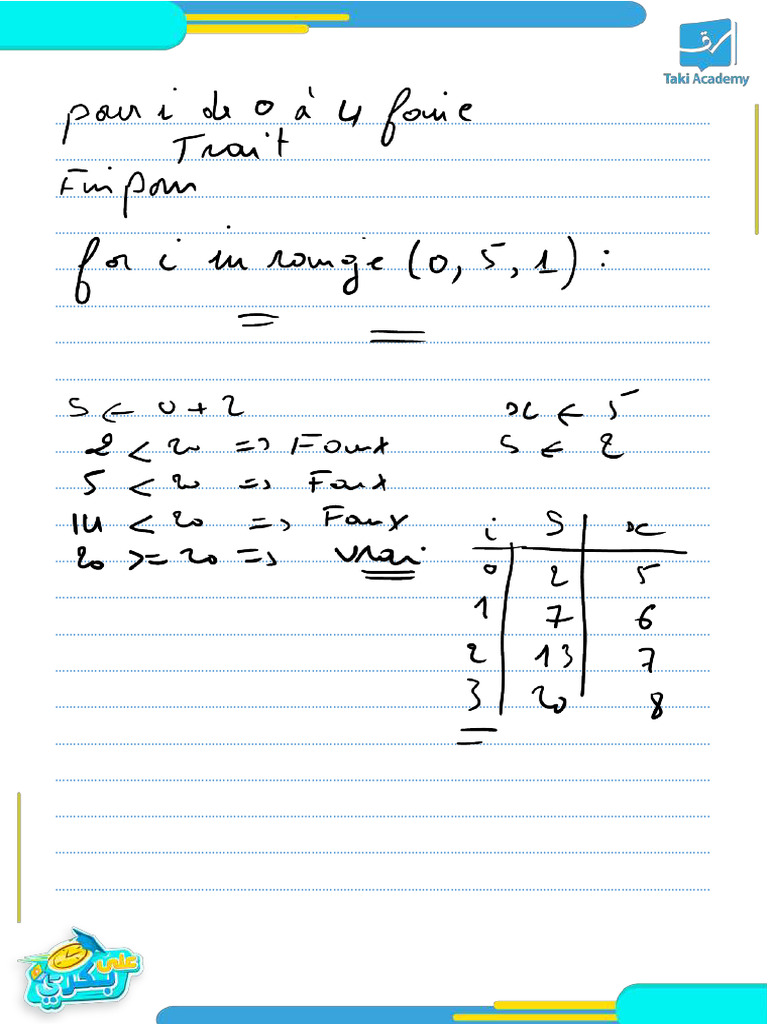 Taki Academy
pour i de 0 à 4 faire
Trait
Fin pour
for i in range (0, 5, 1) :
S ← 0 + 2
x ← 5
2 < 20 => Faux
S ← 2
5 < 20 => Faux
14 < 20 => Faux
20 >= 20 => vrai
i S x
0 2 5
1 7 6
2 13 7
3 20 8
على بكري